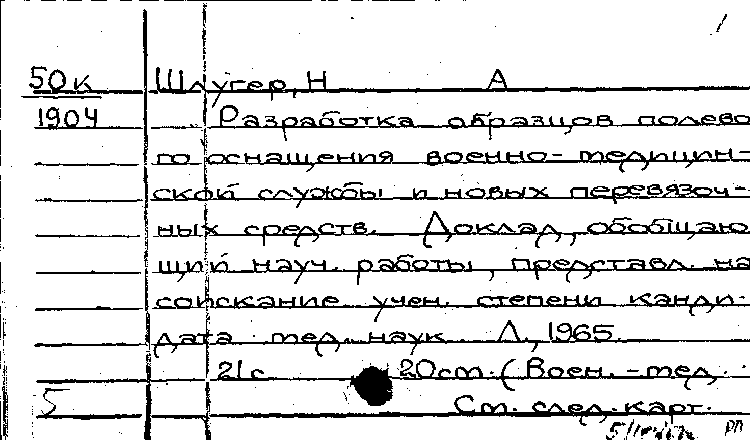 1
50к Шлугер, Н А
1904 Разработка образцов полево
го оснащения военно-медицин-
ской службы и новых перевязоч-
ных средств. Доклад, обобщаю
щий науч. работы, представл. на
соискание учен. степени канди-
дата мед. наук Л., 1965.
21с 20см. (Воен.-мед.
5 См. след. карт.